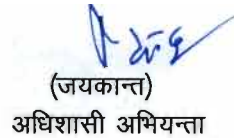 (जयकान्त)
अधिशासी अभियन्ता